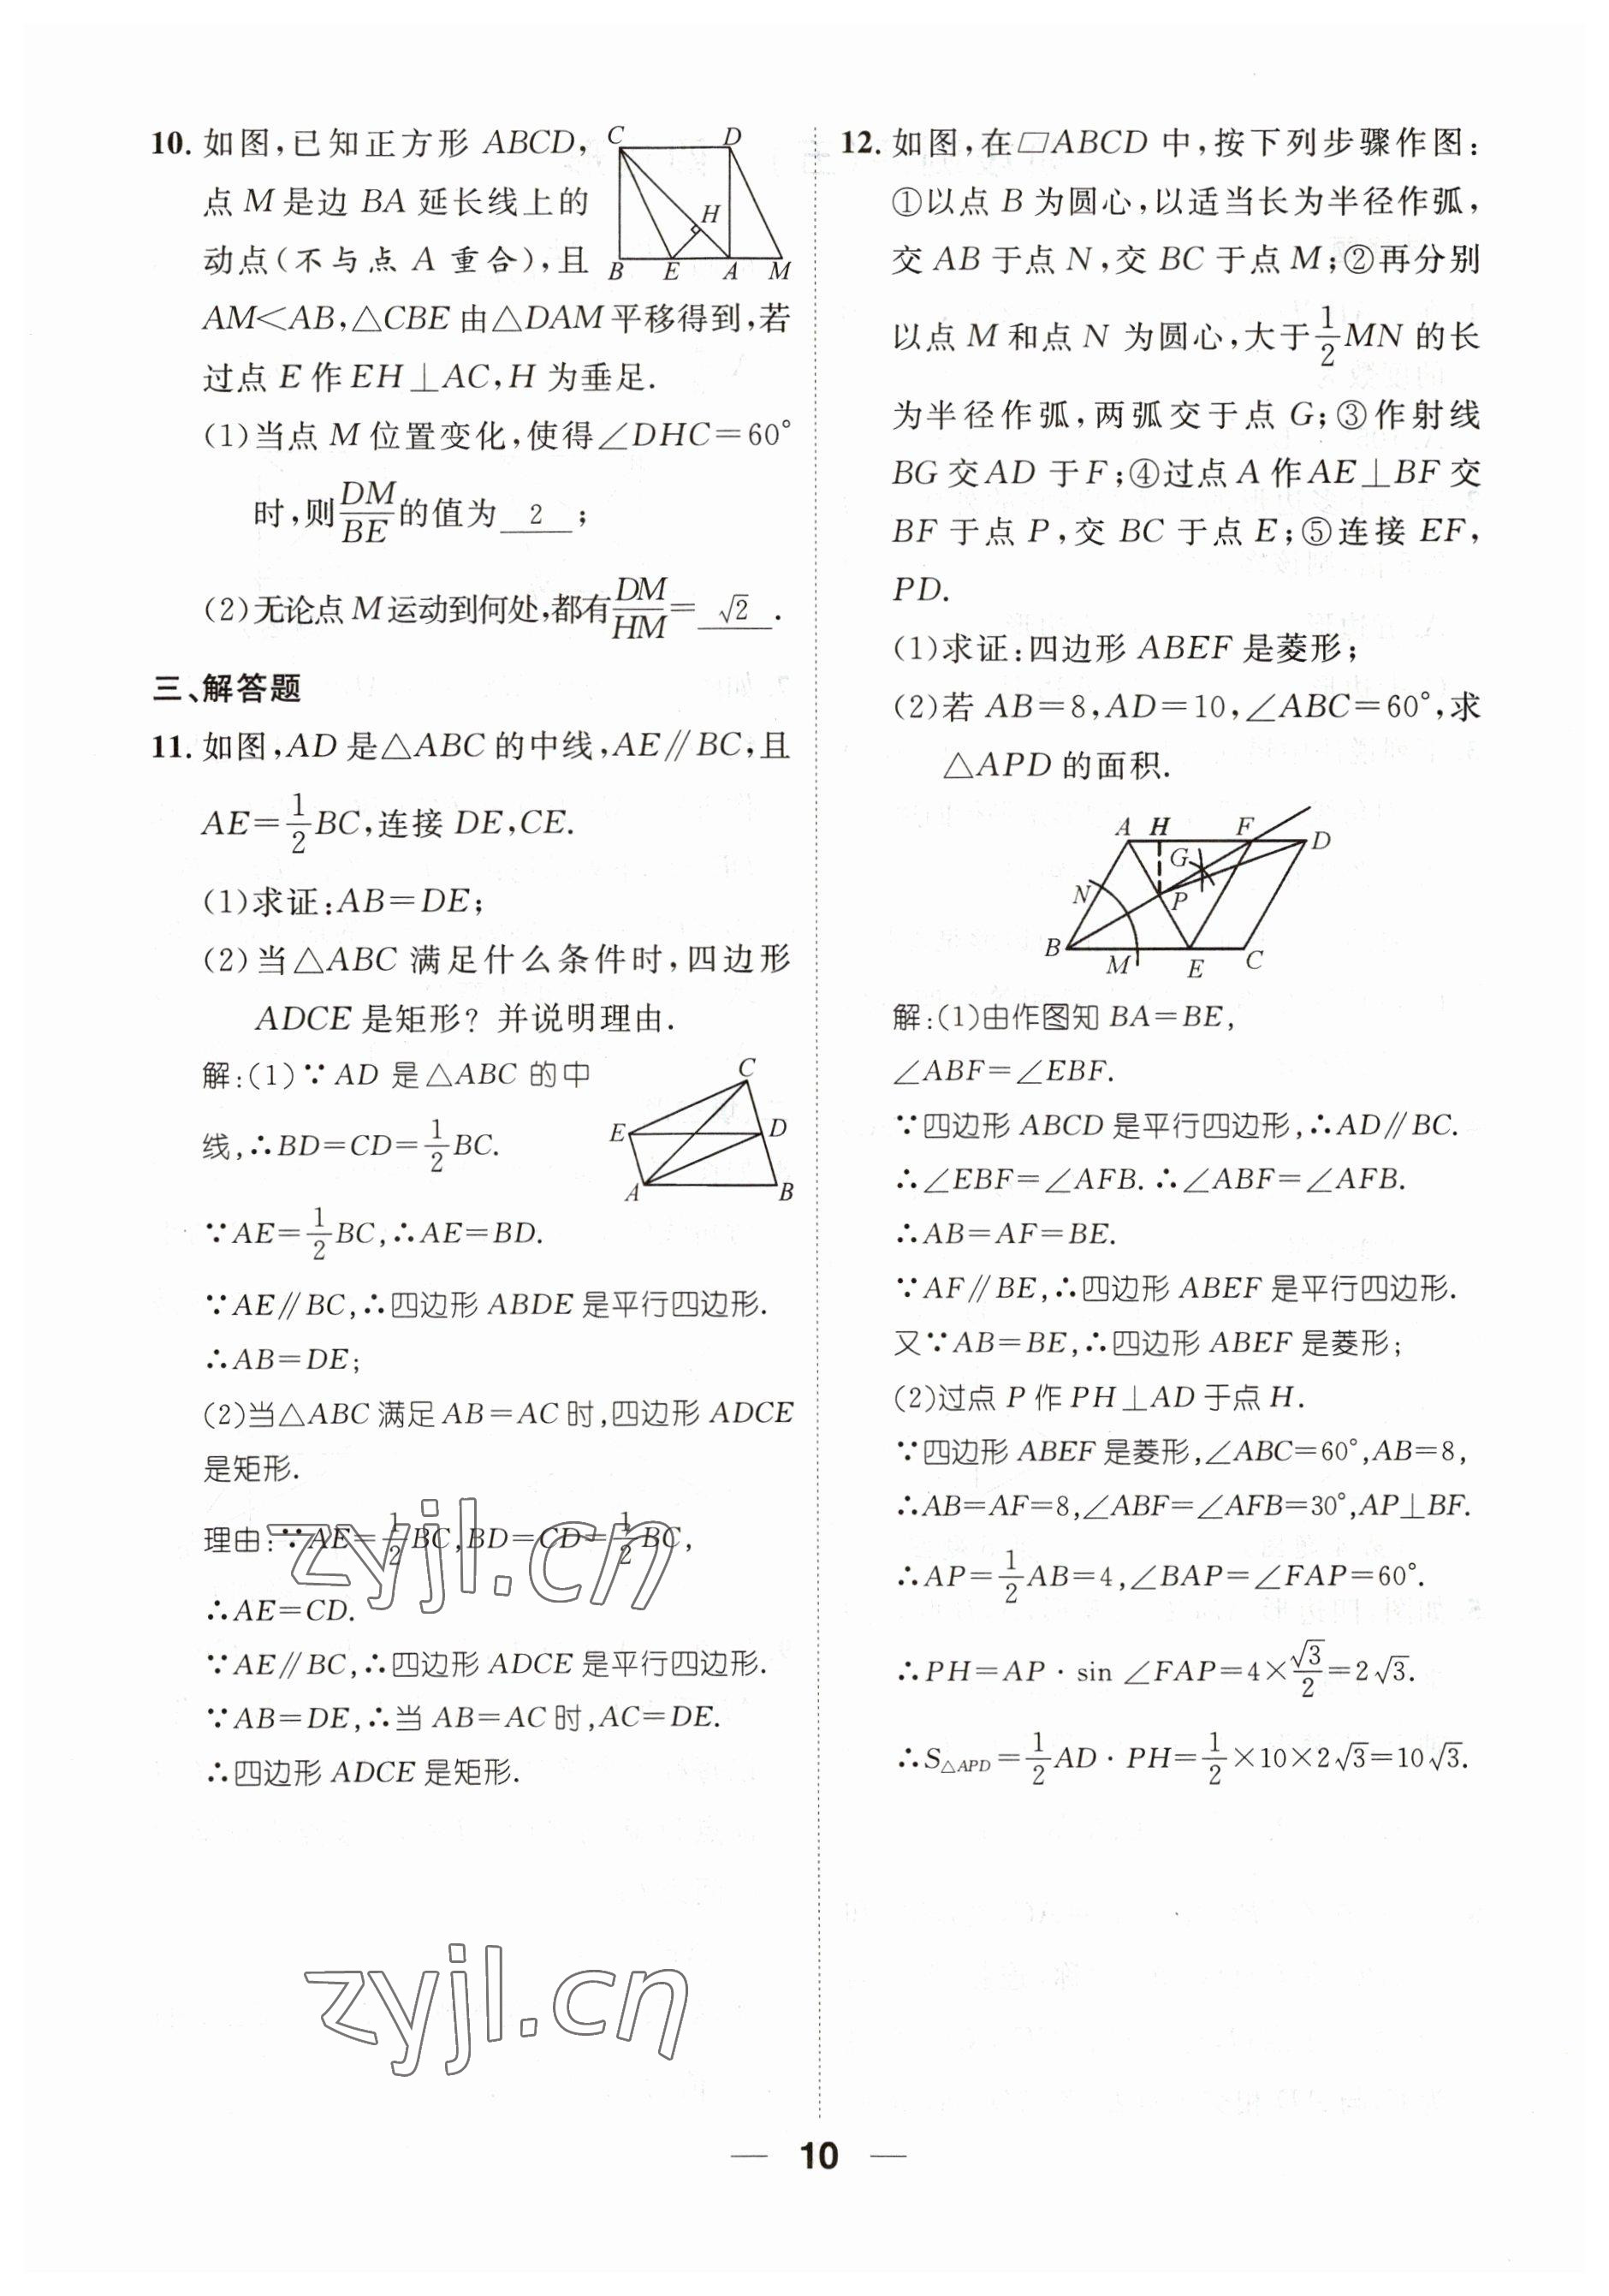 10. 如图,已知正方形 ABCD,
点 M 是边 BA 延长线上的
动点(不与点 A 重合),且
AM<AB,△CBE 由△DAM 平移得到,若
过点 E 作 EH⊥AC,H 为垂足.
(1)当点 M 位置变化,使得∠DHC=60°
时,则DM/BE的值为 2 ;
(2)无论点 M 运动到何处,都有DM/HM= √2 .
C D
H
B E A M
三、解答题
11. 如图,AD 是△ABC 的中线,AE∥BC,且
AE=1/2BC,连接 DE,CE.
(1)求证:AB=DE;
(2)当△ABC 满足什么条件时,四边形
ADCE 是矩形? 并说明理由.
解:(1)∵AD 是△ABC 的中
线,∴BD=CD=1/2BC.
∵AE=1/2BC,∴AE=BD.
∵AE∥BC,∴四边形 ABDE 是平行四边形.
∴AB=DE;
(2)当△ABC 满足 AB=AC 时,四边形 ADCE
是矩形.
理由:∵AE=1/2BC,BD=CD=1/2BC,
∴AE=CD.
∵AE∥BC,∴四边形 ADCE 是平行四边形.
∵AB=DE,∴当 AB=AC 时,AC=DE.
∴四边形 ADCE 是矩形.
C
E D
A B
zyjl.cn
zyjl.cn
12. 如图,在▱ABCD 中,按下列步骤作图:
①以点 B 为圆心,以适当长为半径作弧,
交 AB 于点 N,交 BC 于点 M;②再分别
以点 M 和点 N 为圆心,大于1/2MN 的长
为半径作弧,两弧交于点 G;③作射线
BG 交 AD 于 F;④过点 A 作 AE⊥BF 交
BF 于点 P,交 BC 于点 E;⑤连接 EF,
PD.
(1)求证:四边形 ABEF 是菱形;
(2)若 AB=8,AD=10,∠ABC=60°,求
△APD 的面积.
A H F D
G
N P
B M E C
解:(1)由作图知 BA=BE,
∠ABF=∠EBF.
∵四边形 ABCD 是平行四边形,∴AD∥BC.
∴∠EBF=∠AFB.∴∠ABF=∠AFB.
∴AB=AF=BE.
∵AF∥BE,∴四边形 ABEF 是平行四边形.
又∵AB=BE,∴四边形 ABEF 是菱形;
(2)过点 P 作 PH⊥AD 于点 H.
∵四边形 ABEF 是菱形,∠ABC=60°,AB=8,
∴AB=AF=8,∠ABF=∠AFB=30°,AP⊥BF.
∴AP=1/2AB=4,∠BAP=∠FAP=60°.
∴PH=AP·sin ∠FAP=4×√3/2=2√3.
∴S△APD=1/2AD·PH=1/2×10×2√3=10√3.
— 10 —